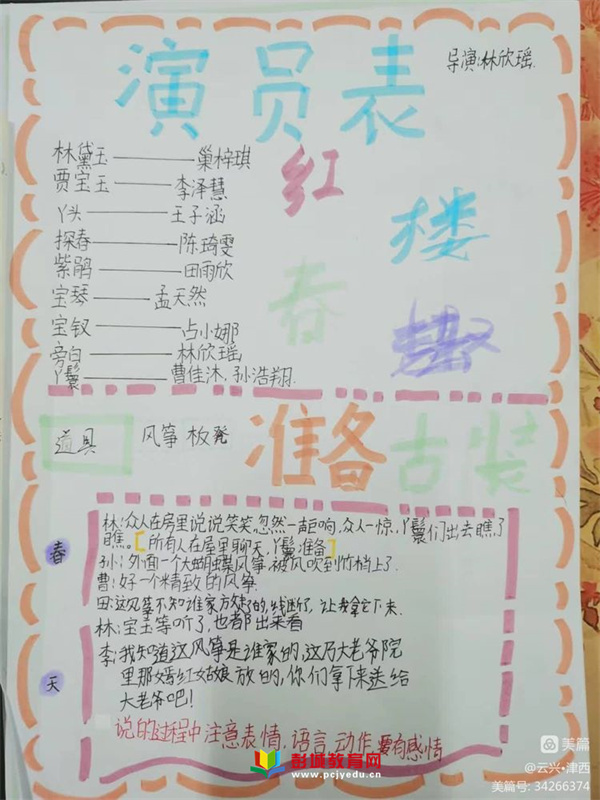 演员表
导演:林欣瑶.
林黛玉——巢梓琪
贾宝玉——李泽慧
丫头——王子涵
探春——陈琦雯
紫鹃——田雨欣
宝琴——孟天然
宝钗——占小娜
旁白——林欣瑶
丫鬟——曹佳沐,孙浩翔.
红
楼
春
道具
风筝 板凳
准备古装
春
天
林:众人在房里说说笑笑忽然一声巨响,众人一惊,丫鬟们出去瞧了
瞧。[所有人在屋里聊天,丫鬟准备]
孙:外面一个大蝴蝶风筝,被风吹到竹梢上了.
曹:好一个精致的风筝.
田:这风筝不知谁家放的,线断了,让我拿它下来.
林:宝玉等听了,也都出来看
李:我知道这风筝是谁家的,这乃大老爷院
里那嫣红姑娘放的,你们拿下来送给
大老爷吧!
说的过程中注意表情,语言,动作要有感情
彭城教育网
www.pcjyedu.cn
美篇
@云兴·津西
美篇号: 34266374